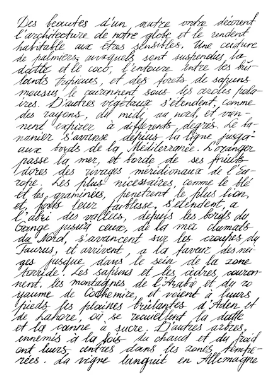 Des beautés d'un autre ordre décorent
l'architecture de notre globe et le rendent
habitable aux êtres sensibles. Une ceinture
de palmiers, auxquels sont suspendus la
datte et le coco, l'entoure entre les brû-
lants tropiques, et des forêts de sapins
mousseux le couronnent sous les cercles polai-
ires. D'autres végétaux s'étendent, comme
des rayons, du midi au nord, et vien-
nent expirer à différents degrés. Le ba-
nanier s'avance depuis la ligne jusqu'
aux bords de la Méditerranée. L'oranger
passe la mer, et borde de ses fruits
dorés des rivages méridionaux de l'Eu-
rope. Les plus nécessaires, comme le blé
et les graminées, pénètrent le plus loin,
et, forts leur faiblesse, s'étendent, à
l'abri des vallées, depuis les bords du
Gange jusqu'à ceux de la mer
du Nord, s'avancent sur les croupes du
Taurus, et arrivent à la faveur des nei-
ges jusque dans le sein de la zone
torride. Les sapins et les cèdres couron-
nent les montagnes de l'Arabie et du ro-
yaume de Cachemire, et voient à leurs
pieds les plaines brûlantes d'Aden et
de Lahore, où se recueillent la datte
et la canne à sucre. D'autres arbres,
ennemis à la fois du chaud et du froid
ont leurs centres dans les zones tempé-
rées. La vigne languit en Allemagne